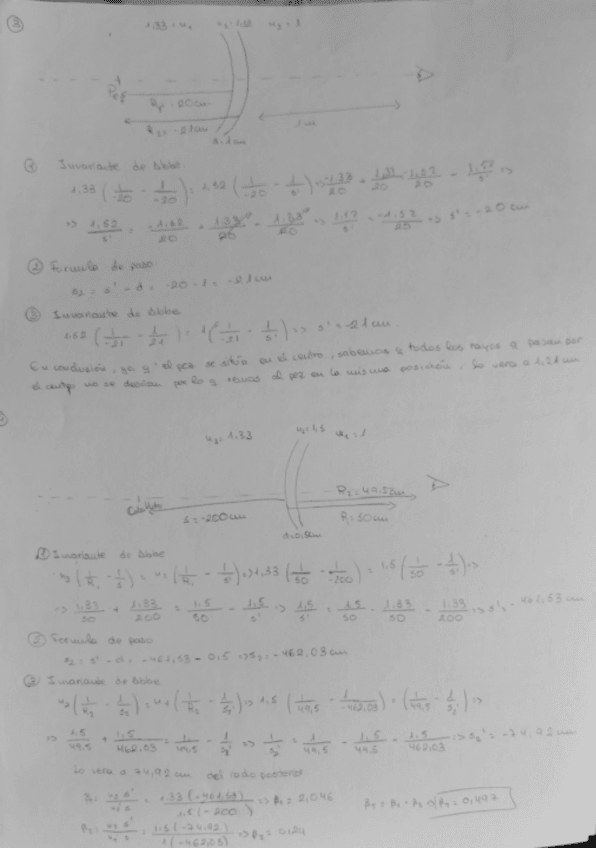 ③
1.33 = n₁ n₂ = 1.52 n₃ = 1
Pez
R₁ = -20cm
R₂ = -21cm
1m
d=1cm
① Invariante de Abbe
1.33 (1/-20 - 1/-20) = 1.52 (1/-20 - 1/s') ⇒
⇒ 1.52/s' = ⇒ s' = -20 cm
② Formula de paso
s₂ = s' - d = -20 - 1 = -21cm
③ Invariante de Abbe
1.52 (1/-21 - 1/21) = 1 (1/-21 - 1/s') ⇒ s' = -21cm
En conclusión, ya q' el pez se sitúa en el centro, sabemos q todos los rayos q pasan por
el centro no se desvían por lo q vemos al pez en la misma posición, lo vera a 1,21 cm
n₂ = 1.33 n₂ = 1,5 n₁ = 1
R₂ = 49.5cm
s = -200cm R = 50cm
d=0.5cm
① Invariante de Abbe
(1/R₁ - 1/s) = (1/R₁ - 1/s') ⇒ 1,33 (1/50 - 1/-200) = 1.5 (1/50 - 1/s') ⇒
⇒ 1.33/50 + 1.33/200 = 1.5/50 - 1.5/s' ⇒ 1.5/s' = 1.5/50 - 1.33/50 - 1.33/200 ⇒ s' = -461,53 cm
② Formula de paso
s₂ = s' - d = -461,53 - 0,5 ⇒ s₂ = -462,03 cm
③ Invariante de Abbe
n₂ (1/R₂ - 1/s₂) = n₁ (1/R₂ - 1/s₂') ⇒ 1.5 (1/49,5 - 1/-462,03) = (1/49,5 - 1/s₂') ⇒
⇒ 1.5/49.5 + 1.5/462,03 = 1/49,5 - 1/s₂' ⇒ 1/s₂' = 1/49,5 - 1,5/49,5 - 1,5/462,03 ⇒ s₂' = -74,92 cm
Lo vera a 74,92 cm del lado posterior
β₁ = = 1.33 (-461,53)/1.5 (-200) ⇒ β₁ = 2,046 β_T = β₁ · β₂ β_T = 0,497
β₂ = = 1.5 (-74.92)/1 (-462,03) ⇒ β₂ = 0,24